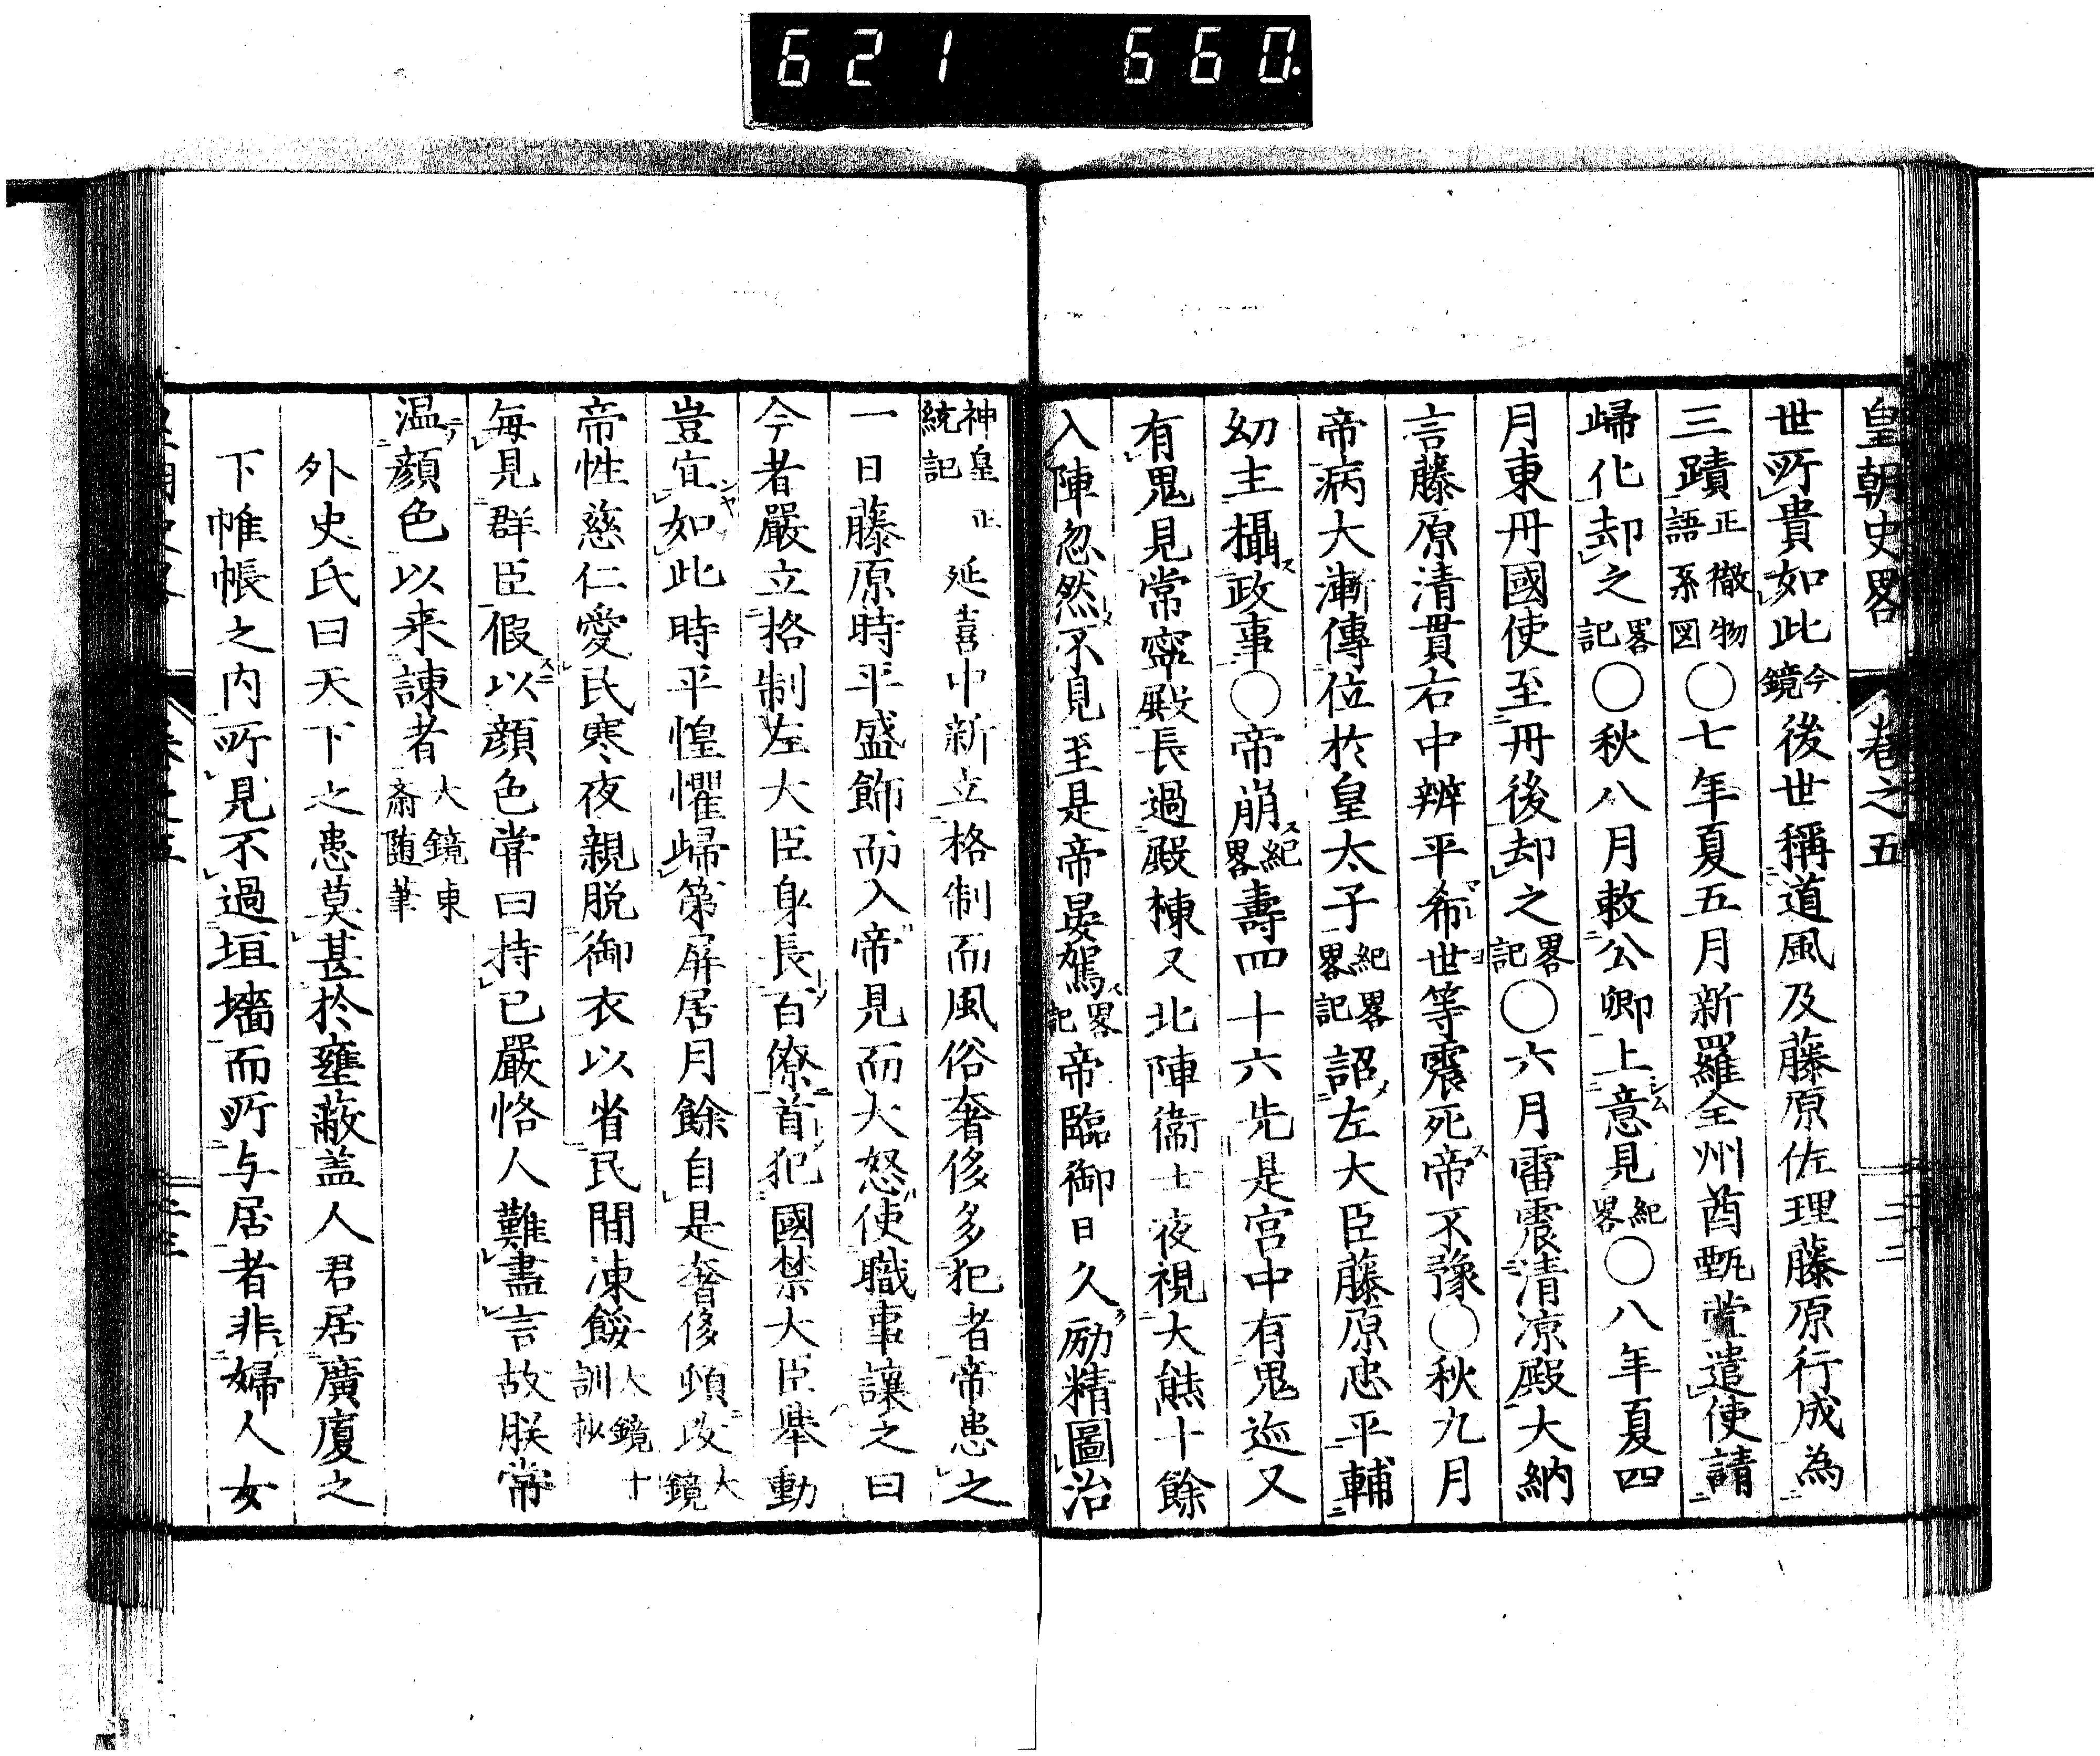 621 660.
皇朝史畧 巻之五 二二
世所貴如此今鏡後世稱道風及藤原佐理藤原行成為
三蹟正徹物語系図〇七年夏五月新羅全州酋甄萱遣使請
歸化却之畧記〇秋八月敕公卿上意見紀畧〇八年夏四
月東丹國使至丹後却之畧記〇六月雷震清凉殿大納
言藤原清貫右中辨平希世等震死帝不豫〇秋九月
帝病大漸傳位於皇太子紀畧畧記詔左大臣藤原忠平輔
幼主攝政事〇帝崩紀畧壽四十六先是宮中有鬼迹又
有鬼見常寧殿長過殿棟又北陣衞士夜視大熊十餘
入陣忽然不見至是帝晏駕畧記帝臨御日久励精圖治
神皇正統記延喜中新立格制而風俗奢侈多犯者帝患之
一日藤原時平盛飾而入帝見而大怒使職事讓之曰
今者嚴立挌制左大臣身長百僚首犯國禁大臣舉動
豈宜如此時平惶懼歸第屏居月餘自是奢侈頓改大鏡
帝性慈仁愛民寒夜親脱御衣以省民間凍餒大鏡十訓抄
毎見群臣假以顔色常曰持已嚴恪人難盡言故朕常
温顔色以来諫者大鏡東斎随筆
外史氏曰天下之患莫甚於壅蔽盖人君居廣廈之
下帷帳之内所見不過垣墻而所与居者非婦人女